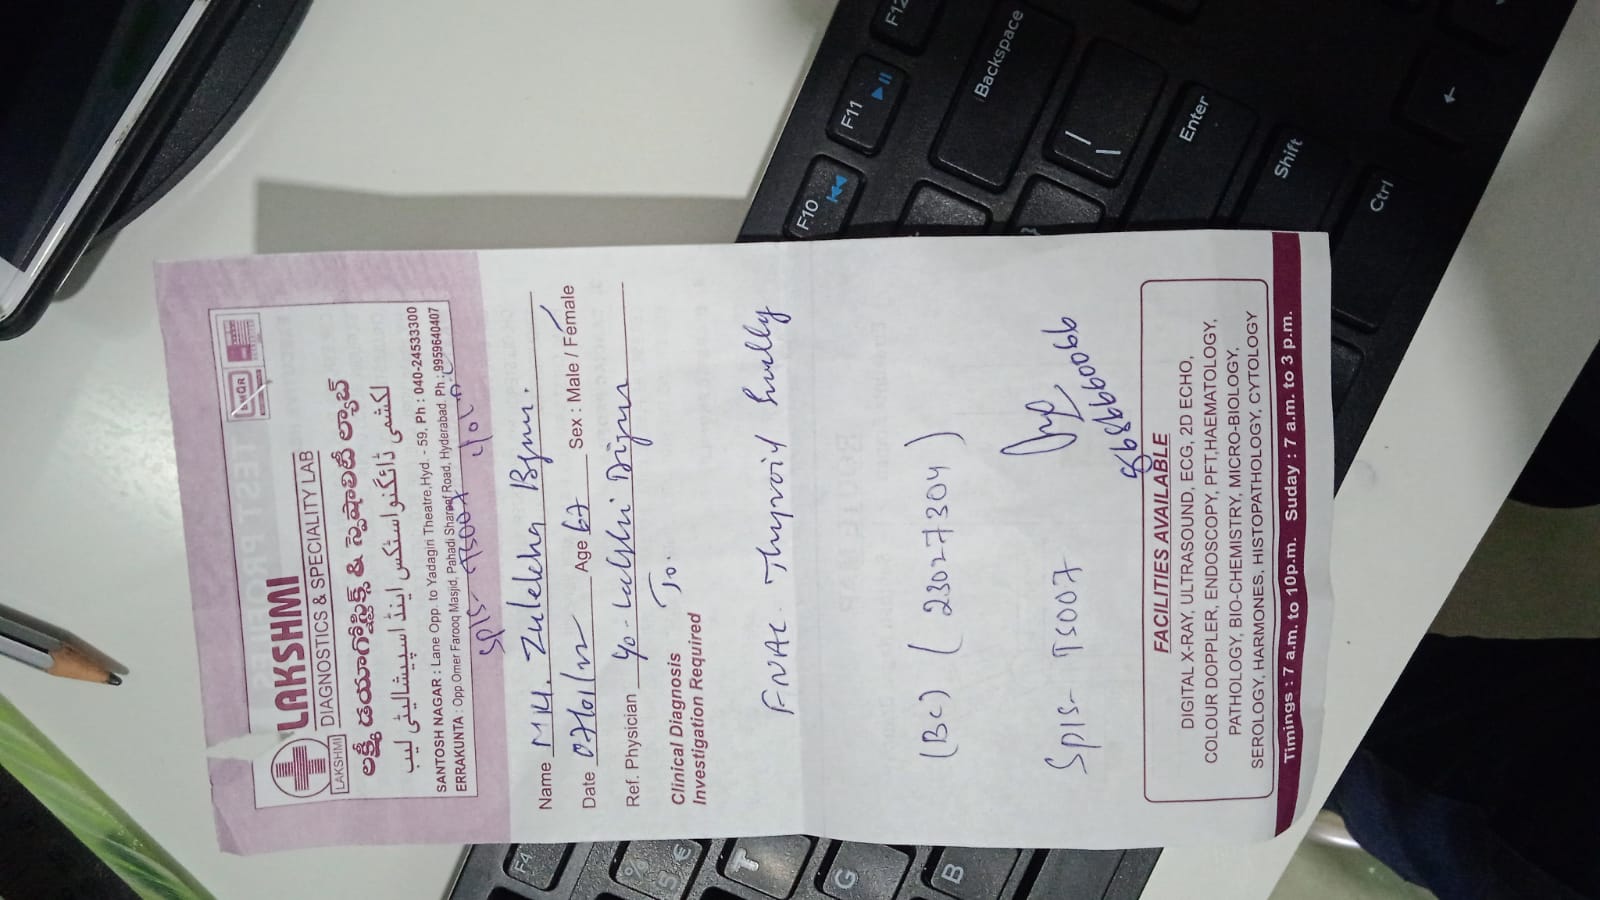 LAKSHMI
LAKSHMI
DIAGNOSTICS & SPECIALITY LAB
లక్ష్మీ డయాగ్నోస్టిక్స్ & స్పెషాలిటీ ల్యాబ్
لکشمی ڈائگنواسٹکس اینڈ اسپیشالیٹی لیب
SANTOSH NAGAR : Lane Opp. to Yadagiri Theatre,Hyd. - 59, Ph : 040-24533300
ERRAKUNTA : Opp.Omer Farooq Masjid, Pahadi Shareef Road, Hyderabad. Ph :9959640407
SPIS- TS007
Name Zulekha
Date Age 67 Sex : Male / Female
Ref. Physician
Clinical Diagnosis To.
Investigation Required
FNAC - Thyroid
(BC) ( 23027304 )
SPIS- TS007
8686660066
FACILITIES AVAILABLE
DIGITAL X-RAY, ULTRASOUND, ECG, 2D ECHO,
COLOUR DOPPLER, ENDOSCOPY, PFT,HAEMATOLOGY,
PATHOLOGY, BIO-CHEMISTRY, MICRO-BIOLOGY,
SEROLOGY, HARMONES, HISTOPATHOLOGY, CYTOLOGY
Timings : 7 a.m. to 10p.m. Suday : 7 a.m. to 3 p.m.
F10
F11
F12
Backspace
Enter
Shift
Ctrl
F4
%
5 €
T
G
B